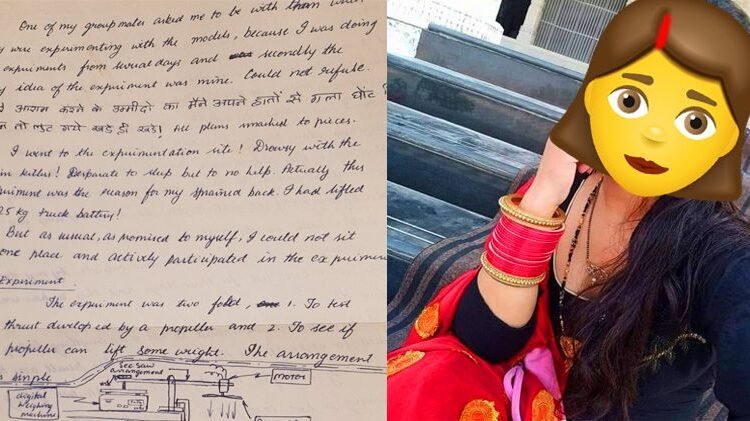 One of my groupmates asked me to be with them when
were experimenting with the models, because I was doing
experiments from several days and secondly the
idea of the experiment was mine. Could not refuse.
आराम करने के उम्मीदो का मैंने अपने हातों से गला घोंट
तो लुट गये खडे ही खडे! All plans smashed to pieces.
I went to the experimentation site! Drowsy with the
killers! Desparate to sleep but to no help. Actually this
was the reason for my sprained back. I had lifted
25 kg truck battery!
But as usual, as promised to myself, I could not sit
one place and actively participated in the
Experiment
The experiment was two fold, 1. To test
thrust developed by a propeller and 2. To see if
propeller can lift some weight. The arrangement
simple
See saw
arrangement
MOTOR
digital
weighing
machine